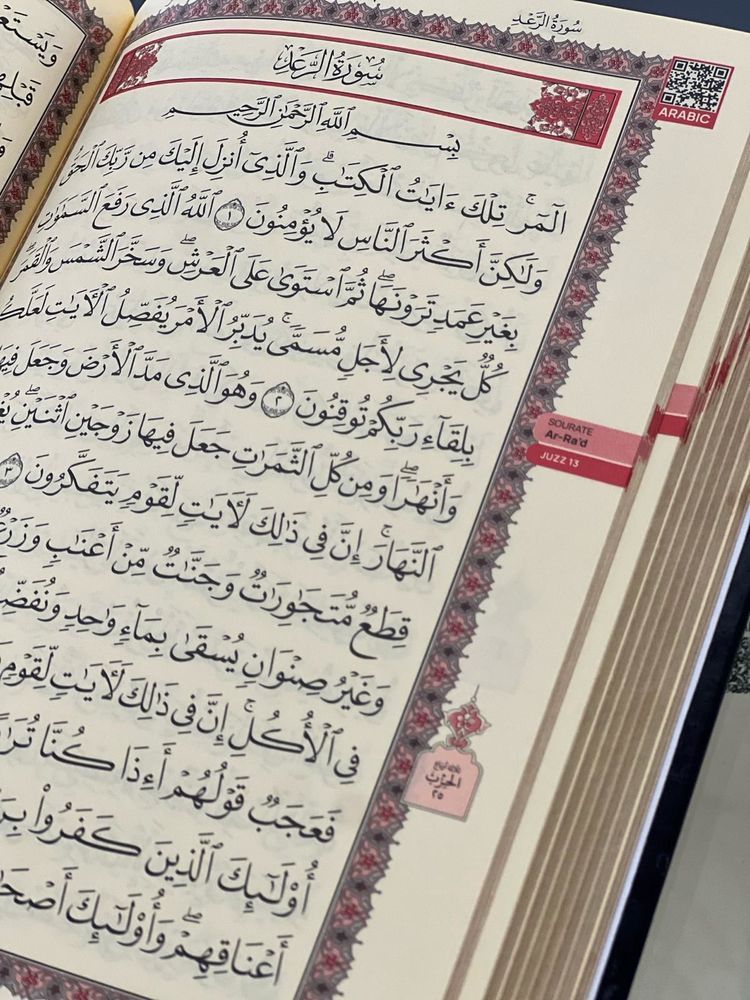 سُورَةُ الرَّعْدِ
ARABIC
سُورَةُ الرَّعْدِ
بِسْمِ ٱللَّهِ ٱلرَّحْمَٰنِ ٱلرَّحِيمِ
الٓمٓر ۚ تِلْكَ ءَايَٰتُ ٱلْكِتَٰبِ ۗ وَٱلَّذِىٓ أُنزِلَ إِلَيْكَ مِن رَّبِّكَ ٱلْحَقُّ
وَلَٰكِنَّ أَكْثَرَ ٱلنَّاسِ لَا يُؤْمِنُونَ ١ ٱللَّهُ ٱلَّذِى رَفَعَ ٱلسَّمَٰوَٰتِ
بِغَيْرِ عَمَدٍ تَرَوْنَهَا ۖ ثُمَّ ٱسْتَوَىٰ عَلَى ٱلْعَرْشِ ۖ وَسَخَّرَ ٱلشَّمْسَ وَٱلْقَمَرَ ۖ
كُلٌّ يَجْرِى لِأَجَلٍ مُّسَمًّى ۚ يُدَبِّرُ ٱلْأَمْرَ يُفَصِّلُ ٱلْءَايَٰتِ
بِلِقَآءِ رَبِّكُمْ تُوقِنُونَ ٢ وَهُوَ ٱلَّذِى مَدَّ ٱلْأَرْضَ وَجَعَلَ
وَأَنْهَٰرًا ۖ وَمِن كُلِّ ٱلثَّمَرَٰتِ جَعَلَ فِيهَا زَوْجَيْنِ ٱثْنَيْنِ ۖ
ٱلنَّهَارَ ۚ إِنَّ فِى ذَٰلِكَ لَءَايَٰتٍ لِّقَوْمٍ يَتَفَكَّرُونَ ٣
قِطَعٌ مُّتَجَٰوِرَٰتٌ وَجَنَّٰتٌ مِّنْ أَعْنَٰبٍ وَزَرْعٌ
وَغَيْرُ صِنْوَانٍ يُسْقَىٰ بِمَآءٍ وَٰحِدٍ
فِى ٱلْأُكُلِ ۚ إِنَّ فِى ذَٰلِكَ لَءَايَٰتٍ لِّقَوْمٍ
فَعَجَبٌ قَوْلُهُمْ أَءِذَا كُنَّا
أُو۟لَٰٓئِكَ ٱلَّذِينَ كَفَرُوا۟
أَعْنَاقِهِمْ ۖ وَأُو۟لَٰٓئِكَ
SOURATE
Ar-Ra'd
JUZZ 13
الحزب
٢٥